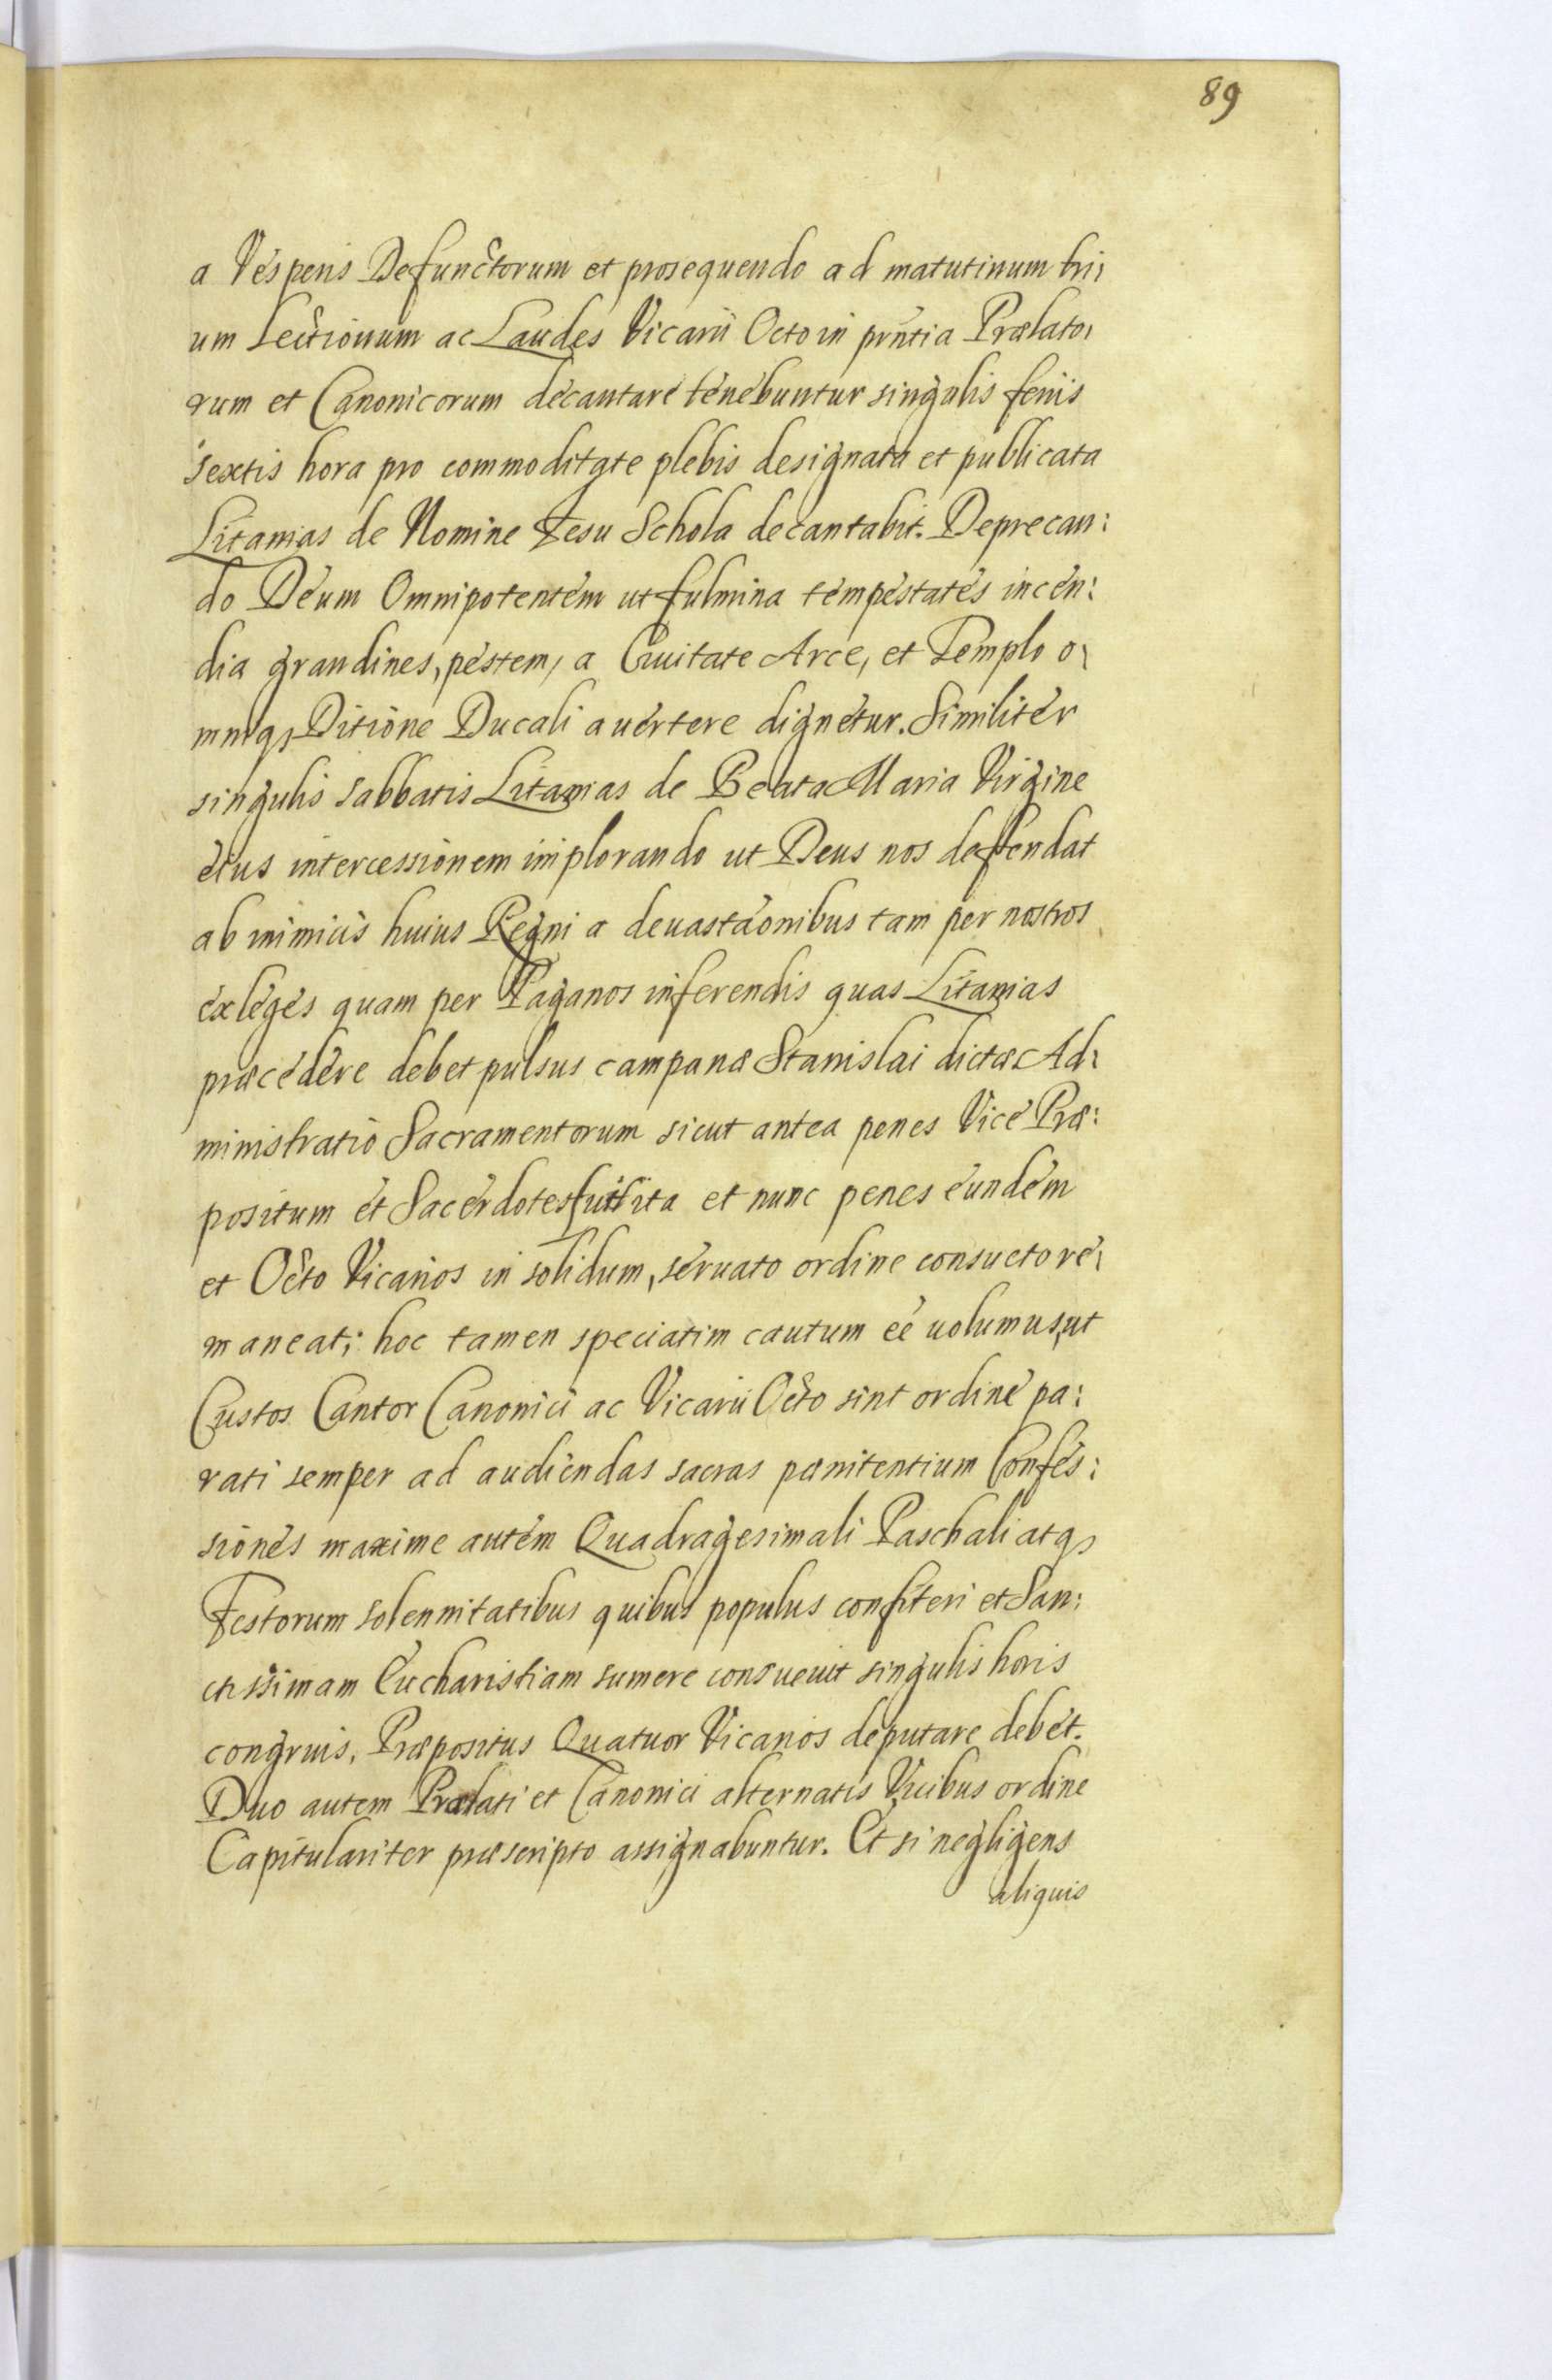 89
a Vesperis Defunctorum et prosequendo ad matutinum tri,
um Lectionum ac Laudes Vicarii Octo in prntia Prælato,
rum et Canonicorum decantare tenebuntur singulis feriis
sextis hora pro commoditate plebis designata et publicata
Litanias de Nomine Iesu Schola decantabit. Deprecan:
do Deum Omnipotentem ut fulmina tempestates incen:
dia grandines, pestem, a Civitate Arce, et Templo o,
mniq, Ditione Ducali auertere dignetur. Similiter
singulis sabbatis Litanias de Beata Maria Virgine
eius intercessionem implorando ut Deus nos deffendat
ab inimicis huius Regni a deuastaonibus tam per nostros
exleges quam per Paganos inferendis quas Litanias
præcedere debet pulsus campanæ Stanislai dictæ Ad,
ministratio Sacramentorum sicut antea penes Vice Præ:
positum et Sacerdotes fuit ita et nunc penes eundem
et Octo Vicarios in solidum, seruato ordine consueto re,
maneat; hoc tamen speciatim cautum eé uolumus, ut
Custos Cantor Canonici ac Vicarii Octo sint ordine pa:
rati semper ad audiendas sacras pænitentium Confes:
siones maxime autem Quadragesimali Paschali atq,
Festorum solennitatibus quibus populus confiteri et San:
ctissimam Eucharistiam sumere consueuit singulis horis
congruis, Præpositus Quatuor Vicarios deputare debet.
Duo autem Prælati et Canonici alternatis Vicibus ordine
Capitulariter præscripto assignabuntur. Et si negligens
aliquis